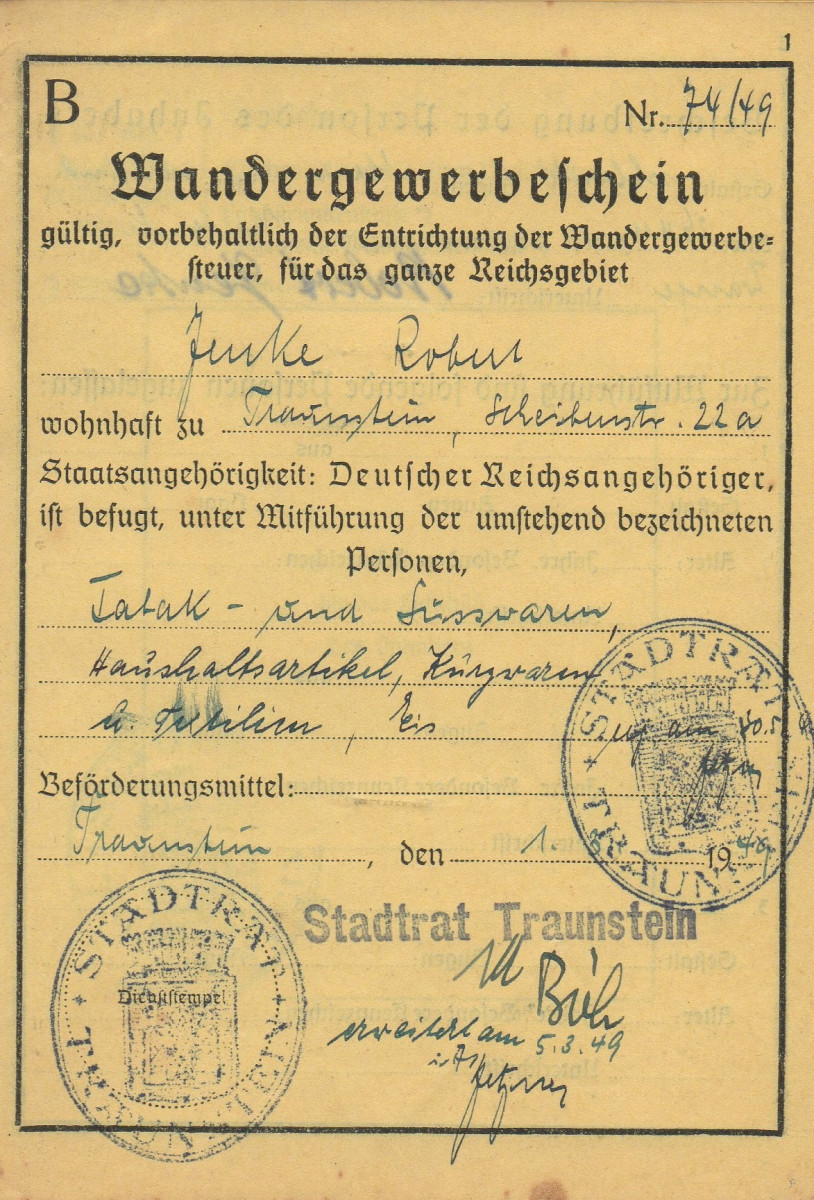 1
B
Nr. 74/49
Wandergewerbeschein
gültig, vorbehaltlich der Entrichtung der Wandergewerbe-
steuer, für das ganze Reichsgebiet
Jenke Robert
wohnhaft zu Traunstein, Scheibenstr. 22a
Staatsangehörigkeit: Deutscher Reichsangehöriger,
ist befugt, unter Mitführung der umstehend bezeichneten
Personen,
Tabak- und Süsswaren,
Haushaltsartikel, Kurzwaren
u. Textilien, Eis
Beförderungsmittel:
Traunstein, den 1. 1949
STADTRAT TRAUNSTEIN
Stadtrat Traunstein
STADTRAT TRAUNSTEIN
Dienststempel
erweitert am 5.3.49